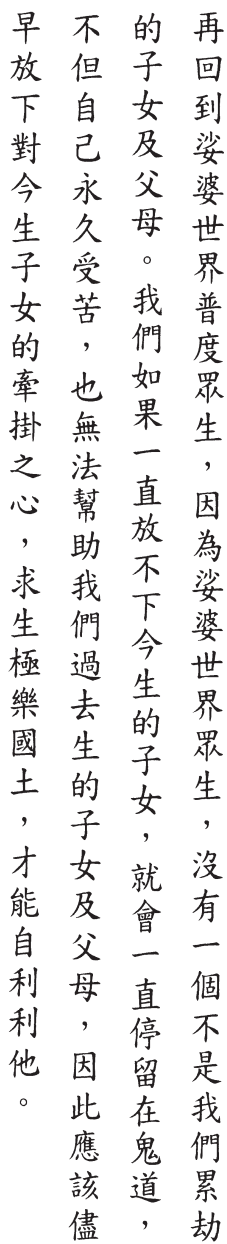 再回到娑婆世界普度眾生，因為娑婆世界眾生，沒有一個不是我們累劫
的子女及父母。我們如果一直放不下今生的子女，就會一直停留在鬼道，
不但自己永久受苦，也無法幫助我們過去生的子女及父母，因此應該儘
早放下對今生子女的牽掛之心，求生極樂國土，才能自利利他。